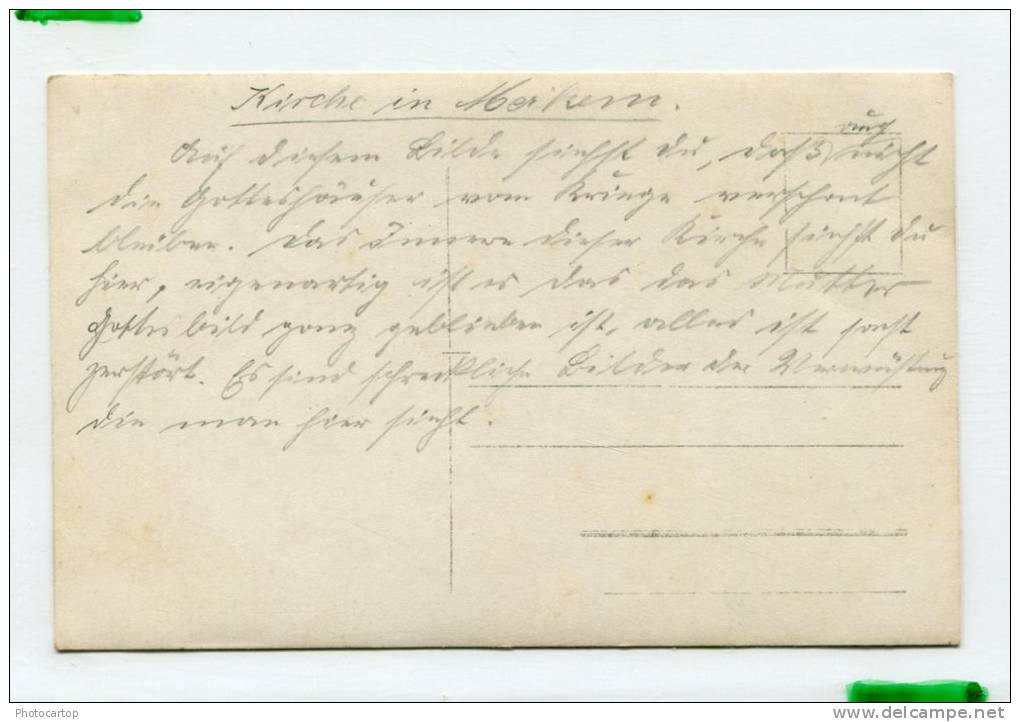 Kirche in Merkem.
Auf diesem Bilde siehst du, daß auch nicht
die Gotteshäuser vom Kriege verschont
bleiben. Das Innere dieser Kirche siehst du
hier, eigenartig ist es das das Mutter
Gottes bild ganz geblieben ist, alles ist sonst
zerstört. Es sind schreckliche Bilder der Verwüstung
die man hier sieht.
Photocartop
www.delcampe.net